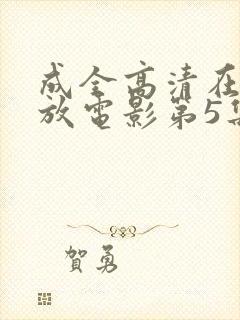 成全高清在
放电影第5集
贺勇